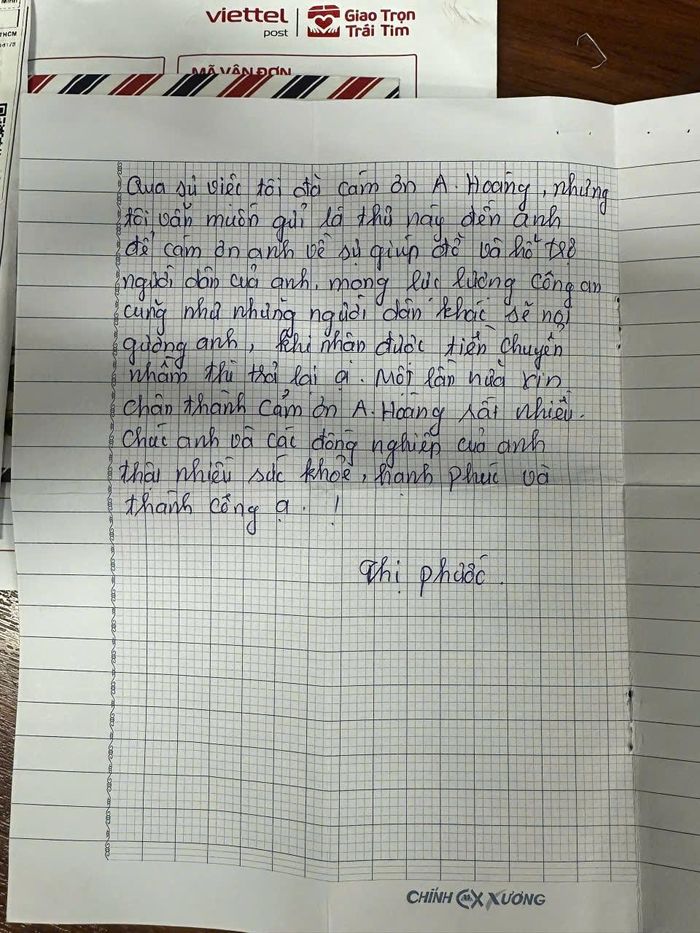 viettel
post
Giao Trọn
Trái Tim
MÃ VẬN ĐƠN
Qua sự việc tôi đã cảm ơn A. Hoàng, nhưng
tôi vẫn muốn gửi lá thư này đến anh
để cảm ơn anh về sự giúp đỡ và hỗ trợ
người dân của anh, mong lực lượng công an
cũng như những người dân khác sẽ noi
gương anh, khi nhận được tiền chuyển
nhầm thì trả lại ạ. Một lần nữa xin
chân thành cảm ơn A. Hoàng rất nhiều.
Chúc anh và các đồng nghiệp của anh
thật nhiều sức khỏe, hạnh phúc và
thành công ạ. !
Thị Phước.
CHÍNH CX XƯƠNG